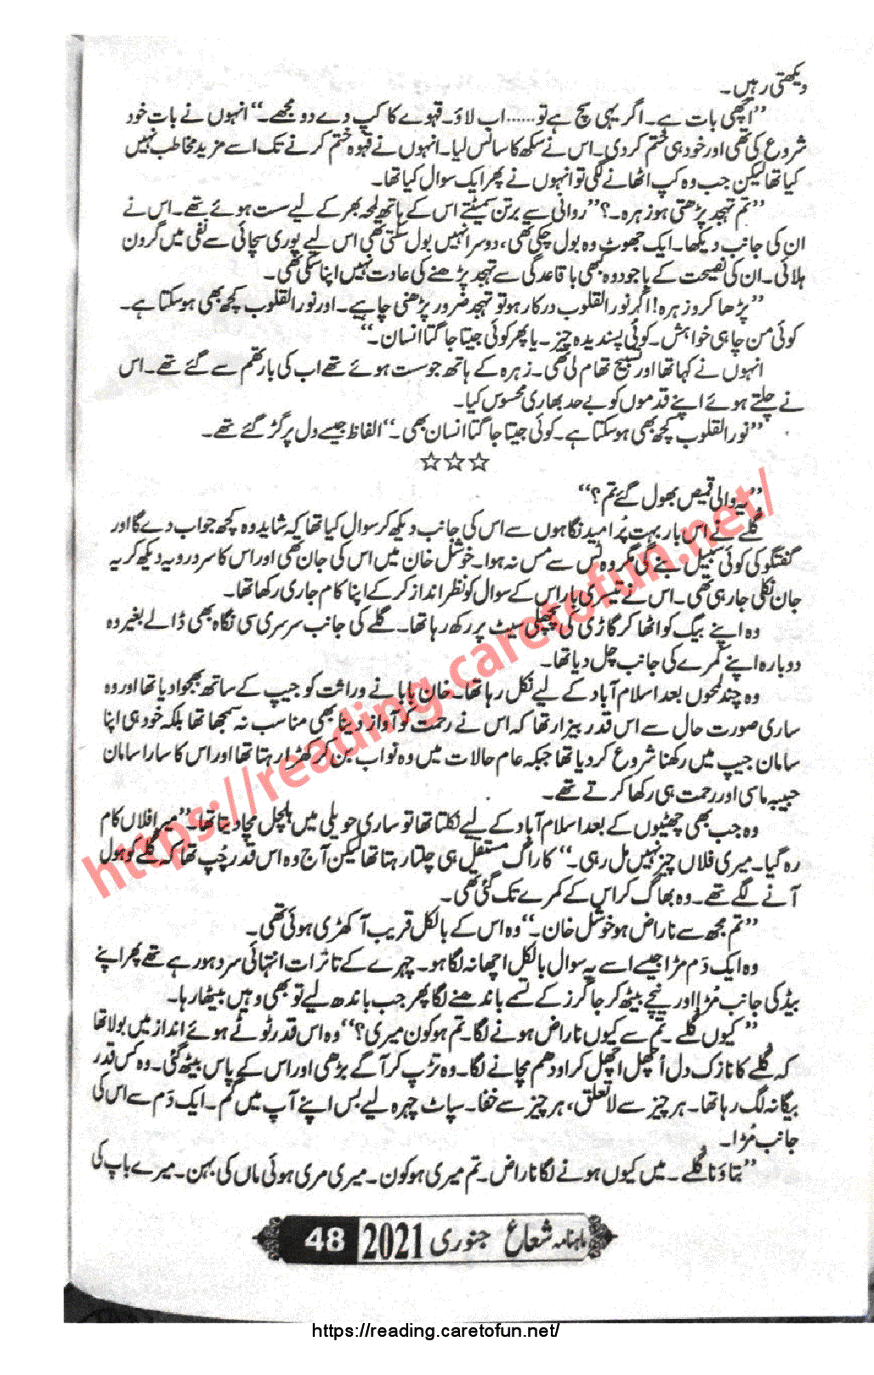 دیکھتی رہیں۔
”اچھی بات ہے۔ اگر یہی سچ ہے تو...... اب لاؤ۔ قہوے کا کپ دے دو مجھے۔“ انہوں نے بات خود
شروع کی تھی اور خود ہی ختم کر دی۔ اس نے سکھ کا سانس لیا۔ انہوں نے قہوہ ختم کرنے تک اسے مزید مخاطب نہیں
کیا تھا لیکن جب وہ کپ اٹھانے لگی تو انہوں نے پھر ایک سوال کیا تھا۔
”تم تہجد پڑھتی ہو زہرہ۔؟“ روانی سے برتن سمیٹتے اس کے ہاتھ لمحہ بھر کے لیے ست ہوئے تھے۔ اس نے
ان کی جانب دیکھا۔ ایک جھوٹ وہ بول چکی تھی، دوسرا نہیں بول سکتی تھی اس لیے پوری سچائی سے نفی میں گردن
ہلائی۔ ان کی نصیحت کے باوجود وہ بھی باقاعدگی سے تہجد پڑھنے کی عادت نہیں اپنا سکی تھی۔
”پڑھا کرو زہرہ! اگر نور القلوب درکار ہو تو تہجد ضرور پڑھنی چاہیے۔ اور نور القلوب کچھ بھی ہو سکتا ہے۔
کوئی من چاہی خواہش۔ کوئی پسندیدہ چیز۔ یا پھر کوئی جیتا جاگتا انسان۔“
انہوں نے کہا تھا اور تسبیح تھام لی تھی۔ زہرہ کے ہاتھ جو ست ہوئے تھے اب کی بار تھم سے گئے تھے۔ اس
نے چلتے ہوئے اپنے قدموں کو بے حد بھاری محسوس کیا۔
”نور القلوب کچھ بھی ہو سکتا ہے۔ کوئی جیتا جاگتا انسان بھی۔“ الفاظ جیسے دل پر گڑ گئے تھے۔
☆☆☆
”یہ والی قمیص بھول گئے تم؟“
گلے نے اس بار بہت پُر امید نگاہوں سے اس کی جانب دیکھ کر سوال کیا تھا کہ شاید وہ کچھ جواب دے گا اور
گفتگو کی کوئی سبیل بنے گی مگر وہ ٹس سے مس نہ ہوا۔ خوشل خان میں اس کی جان تھی اور اس کا سرد رویہ دیکھ کر یہ
جان نکلی جا رہی تھی۔ اس نے تیسری بار اس کے سوال کو نظر انداز کر کے اپنا کام جاری رکھا تھا۔
وہ اپنے بیگ کو اٹھا کر گاڑی کی پچھلی سیٹ پر رکھ رہا تھا۔ گلے کی جانب سرسری سی نگاہ بھی ڈالے بغیر وہ
دوبارہ اپنے کمرے کی جانب چل دیا تھا۔
وہ چند لمحوں بعد اسلام آباد کے لیے نکل رہا تھا۔ خان بابا نے وراثت کو جیپ کے ساتھ بھجوا دیا تھا اور وہ
ساری صورت حال سے اس قدر بیزار تھا کہ اس نے رحمت کو آواز دینا بھی مناسب نہ سمجھا تھا بلکہ خود ہی اپنا
سامان جیپ میں رکھنا شروع کر دیا تھا جبکہ عام حالات میں وہ نواب بن کر کھڑا رہتا تھا اور اس کا سارا سامان
حبیبہ ماسی اور رحمت ہی رکھا کرتے تھے۔
وہ جب بھی چھٹیوں کے بعد اسلام آباد کے لیے نکلتا تھا تو ساری حویلی میں ہلچل مچا دیتا تھا۔ ”میرا فلاں کام
رہ گیا۔ میری فلاں چیز نہیں مل رہی۔“ کا راگ مستقل ہی چلتا رہتا تھا لیکن آج وہ اس قدر چُپ تھا کہ گلے کو ہول
آنے لگے تھے۔ وہ بھاگ کر اس کے کمرے تک گئی تھی۔
”تم مجھ سے ناراض ہو خوشل خان۔“ وہ اس کے بالکل قریب آ کھڑی ہوئی تھی۔
وہ ایک دَم مڑا جیسے اسے یہ سوال بالکل اچھا نہ لگا ہو۔ چہرے کے تاثرات انتہائی سرد ہو رہے تھے پھر اپنے
بیڈ کی جانب مُڑا اور نیچے بیٹھ کر جاگرز کے تسمے باندھنے لگا پھر جب باندھ لیے تو بھی وہیں بیٹھا رہا۔
”کیوں گلے۔ تم سے کیوں ناراض ہونے لگا۔ تم ہو کون میری؟“ وہ اس قدر ٹوٹے ہوئے انداز میں بولا تھا
کہ گلے کا نازک دل اُچھل اُچھل کر اودھم مچانے لگا۔ وہ تڑپ کر آگے بڑھی اور اس کے پاس بیٹھ گئی۔ وہ کس قدر
بیگانہ لگ رہا تھا۔ ہر چیز سے لاتعلق، ہر چیز سے خفا۔ سپاٹ چہرہ لیے بس اپنے آپ میں گم۔ ایک دَم سے اس کی
جانب مُڑا۔
”بتاؤ نا گلے۔ میں کیوں ہونے لگا ناراض۔ تم میری ہو کون۔ میری مری ہوئی ماں کی بہن۔ میرے باپ کی
ماہنامہ شعاع جنوری 2021 48
https://reading.caretofun.net/
https://reading.caretofun.net/